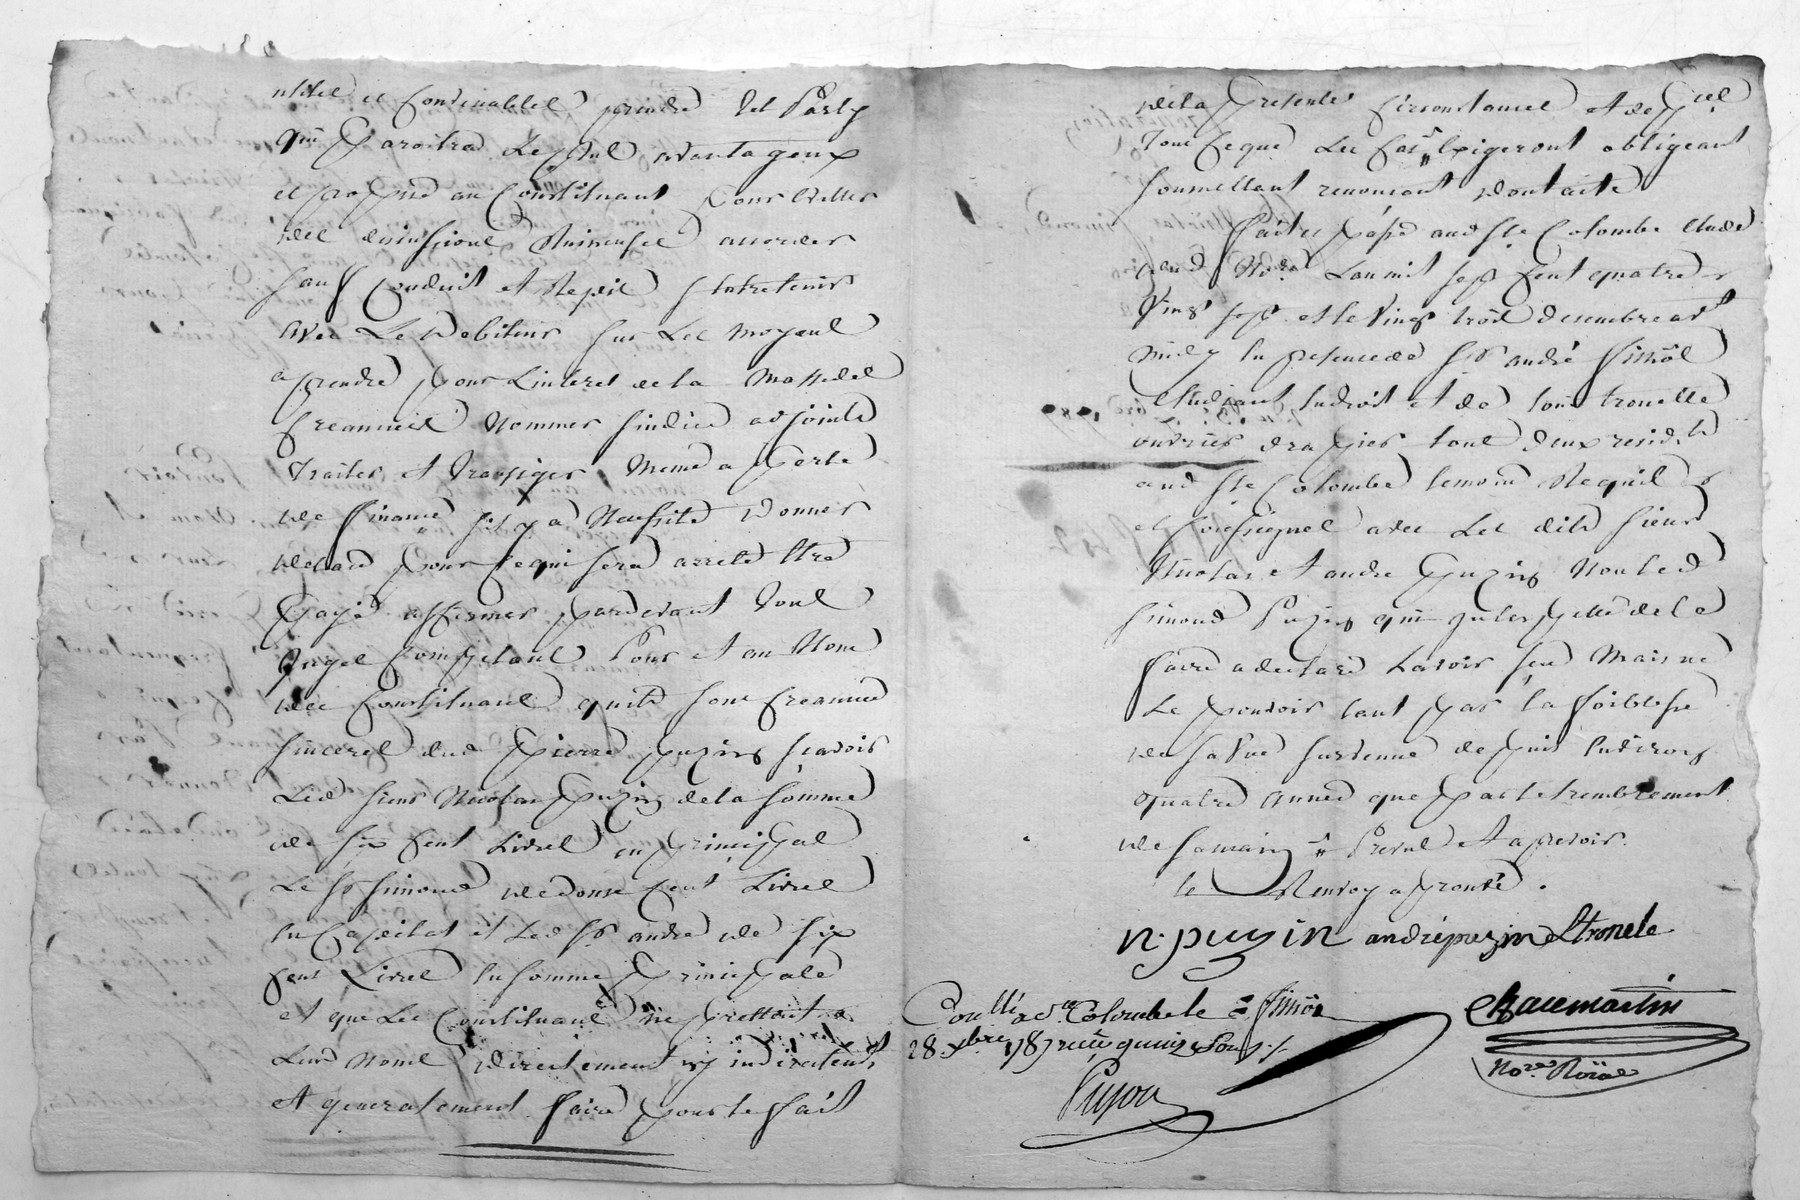 utiles et convenables prendre les Partis
qui Paroitra le plus avantageux
et propre au Constituant pour Eviter
des discussions Ruineuses accorder
sauf Conduit et Repit s'entretenir
avec le debiteur sur les moyens
a prendre pour L'interet de la Masse des
Creanciers Nommer sindics adjoints
Traiter et transiger meme a perte
de finance s'il y a Necessité donner
decharge pour ce qui sera arreté Etre
Payé affirmer pardevant tous
Juges Competans Pour et au Nom
des Constituans qu'ils sont creanciers
sinceres dud Pierre puzin scavoir
Led sieur Nicolas Puzin de la somme
de six Cent Livres en principal
Le sr Simond de douse Cent Livres
En Capital et Led sr andré de six
Cent Livres En somme principale
et que Les Constituans ne prettent
Leurs Noms directement ny indirectement
et generalement faire pour le fait
de la Presente Circonstances et dep.ces
Tout ce que Les Cas Exigeront obligeant
soumettant renonçant dont acte
Fait et passé aud Ste Colombe Etude
dud No.re L'an mil sept Cent quatre
Vingt sept et le Vingt trois decembre avt
midy En presence de sr andré simôs
Etudiant En droit et de tronelle
ouvrier drapier tous deux resid.ts
aud Ste Colombe temoins Requis
et soussignés avec Les dits sieurs
Nicolas et andré Puzin Non Led
simond Puzin qui interpellé de le
faire a declaré L'avoir sçu Mais ne
Le pouvoir tant par la foiblesse
de sa Vue survenue depuis Environ
quatre années que par le tremblement
de sa main
le Renvoy aprouvé.
n. puzin andré puzin Etronele
Conllé a Ste Colombe le simôs
28 Xbre 1787 reçu quinze sous
Chacemartin
No.re Roïal
Pujon